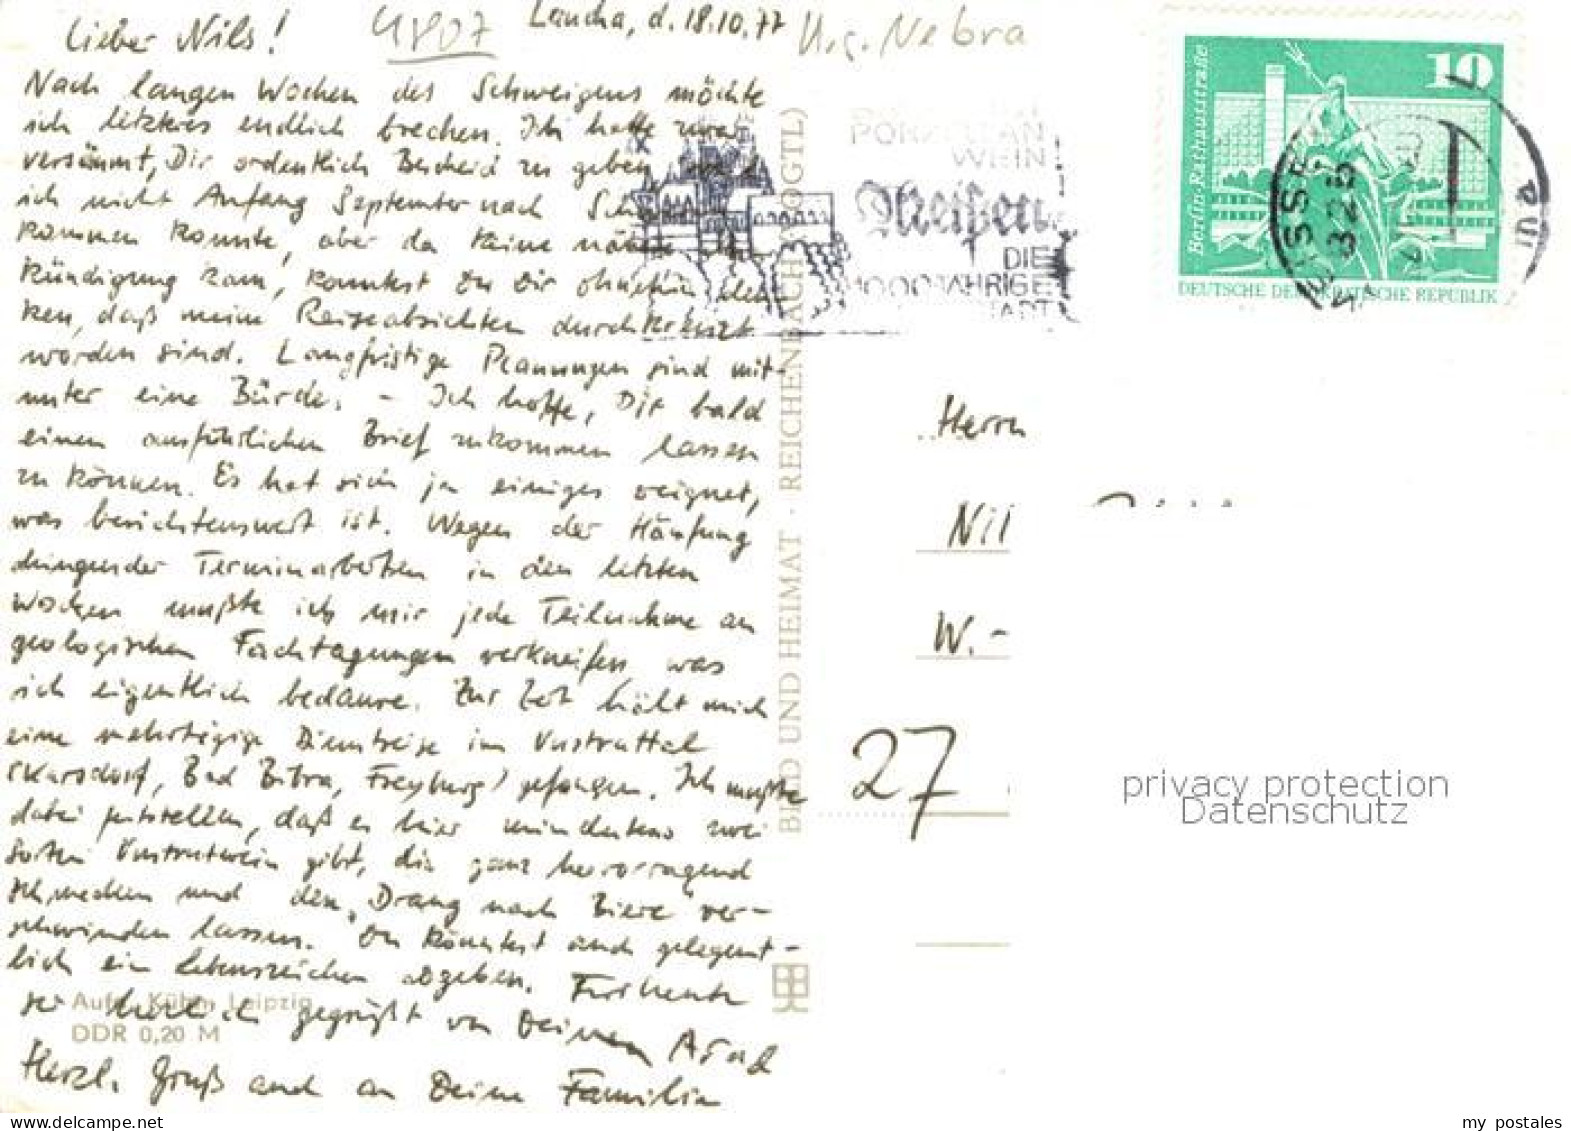 Laucha, d. 18.10.77
4807
U.g. Nebra
Lieber Nils!
Nach langen Wochen des Schweigens möchte
ich letzteres endlich brechen. Ich hatte zwar
versäumt, Dir ordentlich Bescheid zu geben,
ich nicht Anfang September nach
kommen konnte, aber da keine
Kündigung kam, konntest Du Dir ohnehin den-
ken, daß meine Reiseabsichten durchkreuzt
worden sind. Langfristige Planungen sind mit-
unter eine Bürde. - Ich hoffe, Dir bald
einen ausführlichen Brief zukommen lassen
zu können. Es hat sich ja einiges ereignet,
was berichtenswert ist. Wegen der Häufung
dringender Terminarbeiten in den letzten
Wochen mußte ich mir jede Teilnahme an
geologischen Fachtagungen verkneifen, was
ich eigentlich bedaure. Zur Zeit hält mich
eine mehrtägige Dienstreise im Unstruttal
(Karsdorf, Bad Bibra, Freyburg) gefangen. Ich mußte
dabei feststellen, daß es hier mindestens zwei
Sorten Unstrutwein gibt, die ganz hervorragend
schmecken und den „Drang nach Biere" ver-
schwinden lassen. Du könntest auch gelegent-
lich ein Lebenszeichen abgeben. Für heute
sei herzlich gegrüßt von Deinem Arnd
Herzl. Gruß auch an Deine Familie
Aufn. Kühn, Leipzig
DDR 0,20 M
BILD UND HEIMAT · REICHENBACH (VOGTL)
PORZELLAN
WEIN
Meißen
DIE
1000JÄHRIGE
STADT
10
Berlin-Rathausstraße
DEUTSCHE DEMOKRATISCHE REPUBLIK
Herrn
Nil
W.-
27
privacy protection
Datenschutz
my_postales
www.delcampe.net